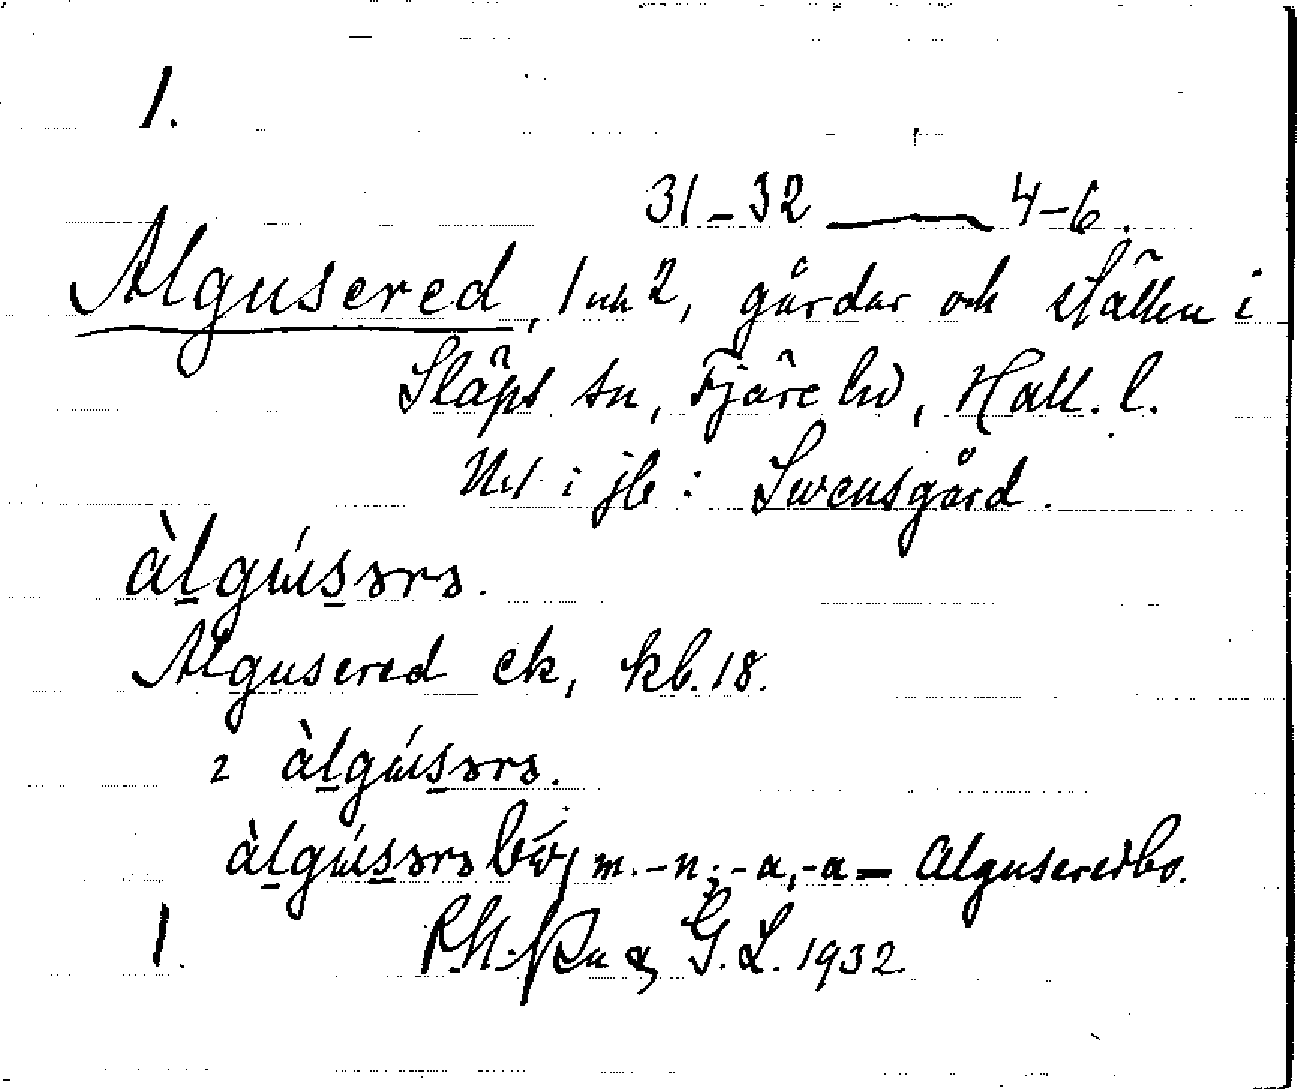 1.
31–32 — 4–6.
Algusered, 1 och 2, gårdar och ställen i
Släps sn, Fjäre hd, Hall. l.
Nr 1 i jb: Swensgård.
àlgúsərə.
Algusered ek, kb. 18.
2 àlgúsərə.
àlgúsərə m. -n; -a, -a – Alguseredbo.
1. G. L. 1932